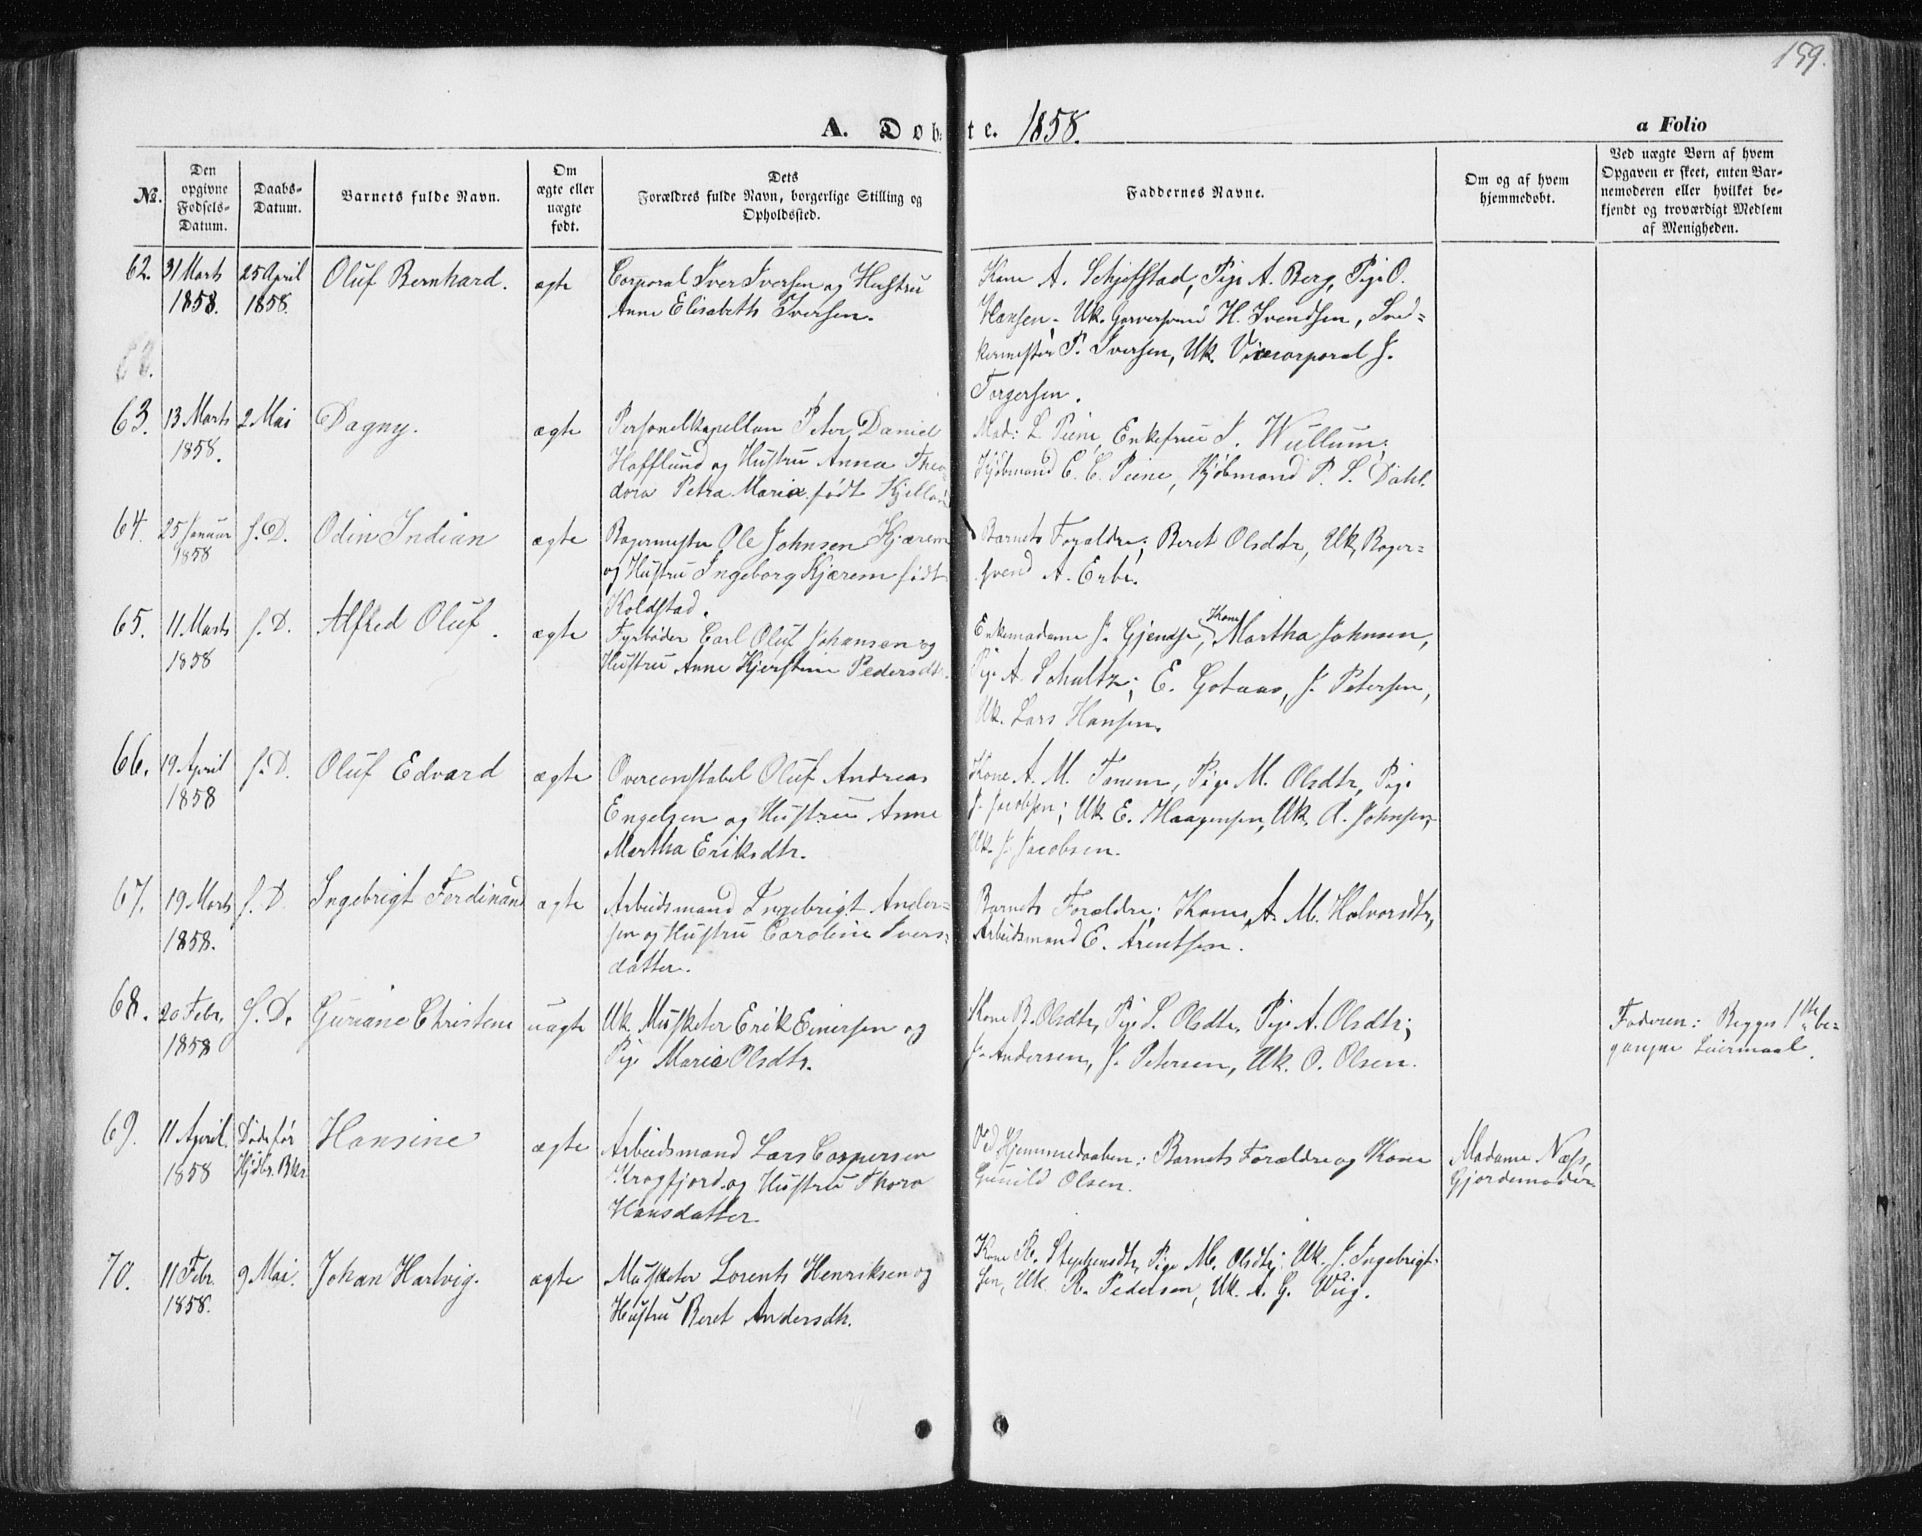 159.
A. Døbte. 1858. a Folio
No. Den opgivne Fødsels-Datum. Daabs-Datum. Barnets fulde Navn. Om ægte eller uægte født. Dets Forældres fulde Navn, borgerlige Stilling og Opholdssted. Faddernes Navne. Om og af hvem hjemmedøbt. Ved uægte Børn af hvem Opgaven er skeet, enten Barnemoderen eller hvilket bekjendt og troværdigt Medlem af Menigheden.
62. 31 Marts 1858. 25 April 1858. Oluf Bernhard. ægte
Corporal Iver Iversen og Hustru
Anne Elisabeth Iversen.
Kone A. Schjefstad, Pige A. Berg, Pige O.
Hansen. Uk. Garversvend H. Svendsen,
P. Iversen, Uk. Vicecorporal J.
Torgersen.
63. 13 Marts 1858. 2 Mai Dagny. ægte
Personelkapellan Peter Daniel
Hofflund og Hustru Anna Theo-
dora Petra Maria født
Mad: L. Piene, Enkefrue S. Wullum;
Kjøbmand C. C. Piene, Kjøbmand P. S. Dahl.
64. 25 Januar 1858 s. D. Odin Indian ægte
Bagermester Ole Johnsen Kjærem
og Hustru Ingeborg Kjærem født
Koldstad.
Barnets Forældre; Beret Olsdtr, Uk. Bager-
svend A. Erbe.
65. 11 Marts 1858 s. D. Alfred Oluf. ægte
Fyrbøder Carl Oluf Johansen og
Hustru Anne Kjerstine Pedersdtr.
Enkemadame J. Gjendse, Kone Martha Johnsen,
Pige A. Schultz; E. Gotaas, J. Petersen,
Uk. Lars Hansen.
66. 19 April 1858 s. D. Oluf Edvard ægte
Overconstabel Oluf Andreas
Engelsen og Hustru Anne
Martha Eriksdtr.
Kone A. M. Tanem, Pige M. Olsdtr, Pige
J. Jacobsen; Uk. E. Haagensen, Uk. A. Johnsen,
Uk. J. Jacobsen.
67. 19 Marts 1858. s. D. Ingebrigt Ferdinand ægte
Arbeidsmand Ingebrigt Ander-
sen og Hustru Caroline Ivers-
datter.
Barnets Forældre; Kone A. M. Halvorsdtr,
Arbeidsmand E. Arentsen.
68. 20 Febr. 1858 s. D. Guriane Christine uægte
Uk. Musketer Erik Einersen og
Pige Maria Olsdtr.
Kone B. Olsdtr, Pige S. Olsdtr, Pige A. Olsdtr;
J. Andersen, J. Petersen, Uk. O. Olsen.
Faderen: Begges 1ste be-
gangne Leiermaal.
69. 11 April 1858 Døde før Hansine ægte
Arbeidsmand Lars Caspersen
Kragfjord og Hustru Thora
Hansdatter
Ved Hjemmedaaben: Barnets Forældre og Kone
Gunild Olsen.
Madame Næss,
Gjordemoder.
70. 11 Febr. 1858. 9 Mai. Johan Hartvig. ægte
Musketer Lorents Henriksen og
Hustru Beret Andersdtr.
Kone R. Stephensdtr, Pige M. Olsdtr; Uk. J. Ingebrigt-
sen, Uk. R. Pedersen, Uk. A. G. Wiig.